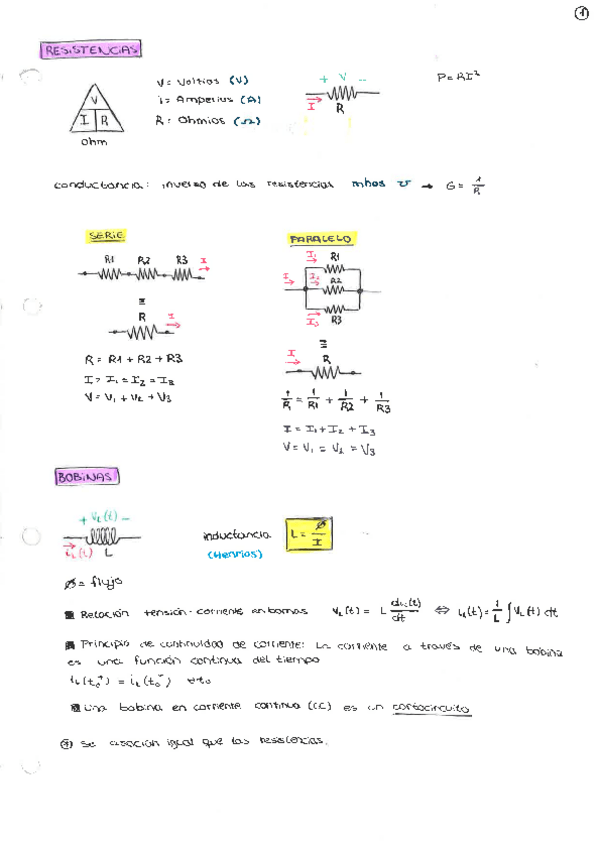 1
RESISTENCIAS
V
I R
Ohm
V = Voltios (V)
i = Amperios (A)
R = Ohmios (Ω)
+ V -
I R
P = RI²
conductancia: inverso de las resistencias mhos ℧ → G = 1/R
SERIE
R1 R2 R3 I
≡
R I
R = R1 + R2 + R3
I = I1 = I2 = I3
V = V1 + V2 + V3
PARALELO
I1 R1
I I2 R2
I3 R3
≡
I R
1/R = 1/R1 + 1/R2 + 1/R3
I = I1 + I2 + I3
V = V1 = V2 = V3
BOBINAS
+ VL(t) -
iL(t) L
inductancia L = ø/I
(Henrios)
ø = flujo
Relación tensión-corriente en bornas VL(t) = L diL(t)/dt ⇔ iL(t) = 1/L ∫ VL(t) dt
Principio de continuidad de corriente: La corriente a través de una bobina
es una función continua del tiempo
iL(t0+) = iL(t0-) ∀t0
Una bobina en corriente continua (CC) es un cortocircuito
* Se asocian igual que las resistencias.